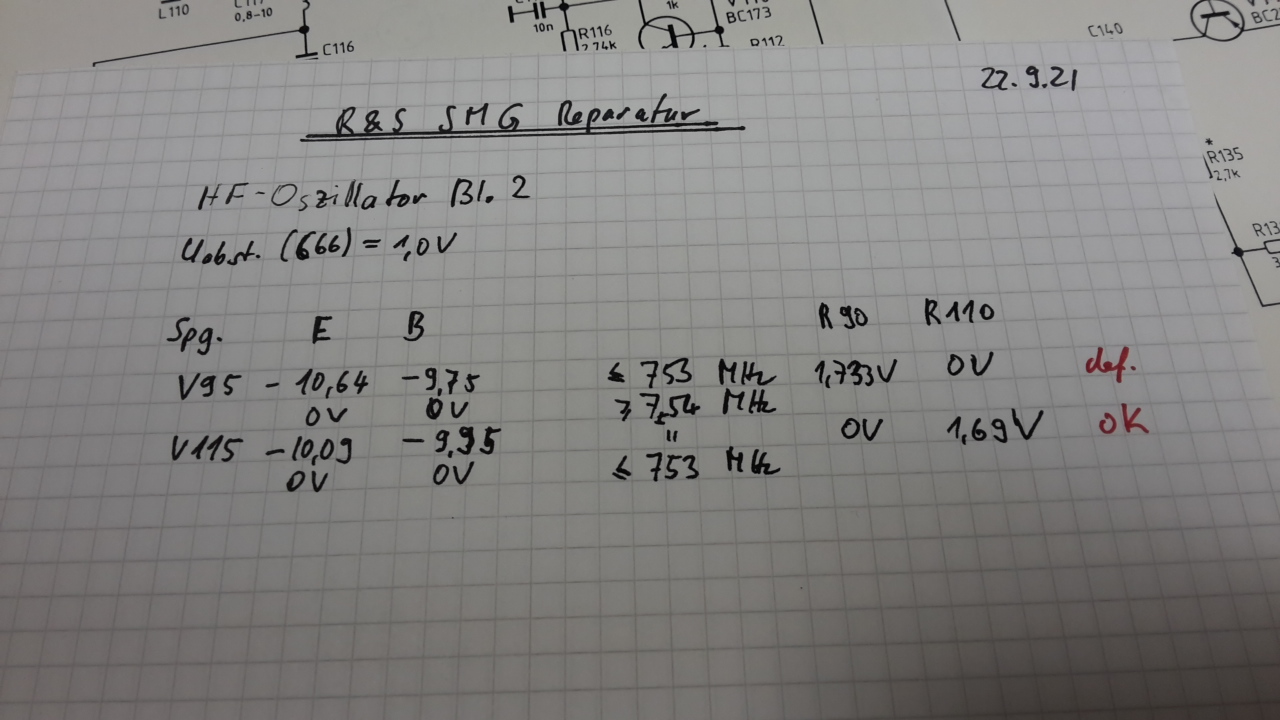 L110
0,8-10
C116
10n
R116
2,74k
1k
BC173
R112
C140
R135
2,7k
22.9.21
R&S SMG Reparatur
HF-Oszillator Bl. 2
Uabst. (666) = 1,0V
Spg. E B R90 R110
V95 -10,64 -9,75 ≤ 753 MHz 1,733V 0V def.
0V 0V ≥ 7,54 MHz
V115 -10,09 -9,95 " 0V 1,69V OK
0V 0V ≤ 753 MHz